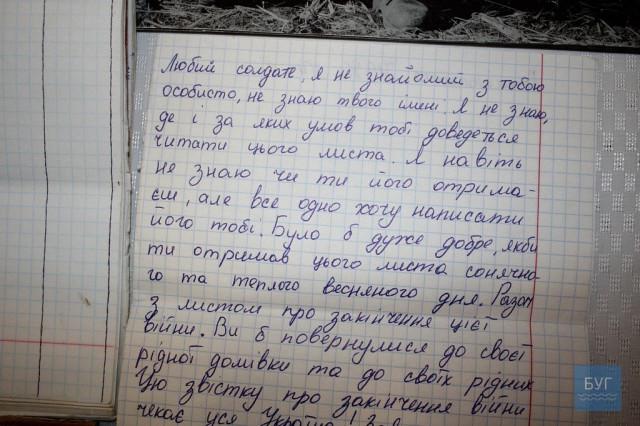 Любий солдате, я не знайомий з тобою
особисто, не знаю твого імені. Я не знаю,
де і за яких умов тобі доведеться
читати цього листа. Я навіть
не знаю чи ти його отрима-
єш, але все одно хочу написати
його тобі. Було б дуже добре, якби
ти отримав цього листа сонячно
го та теплого весняного дня. Разом
з листом про закінчення цієї
війни. Ви б повернулися до своєї
рідної домівки та до своїх рідних
Цю звістку про закінчення війни
чекає уся Україна!
БУГ